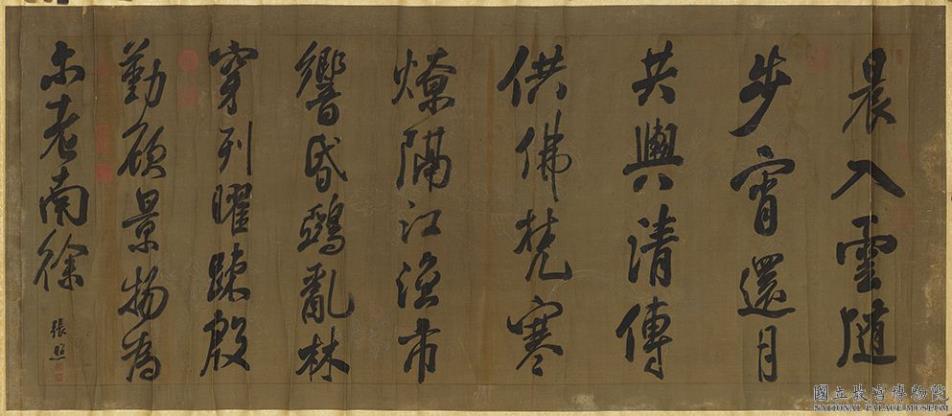 晨入雲隨
步宵還月
共輿清傳
供佛梵寒
燎隔江漁市
響昏鵶亂林
穿列曜踈殷
勤顧景物為
尓老南徐
張照
國立故宮博物院
NATIONAL PALACE MUSEUM